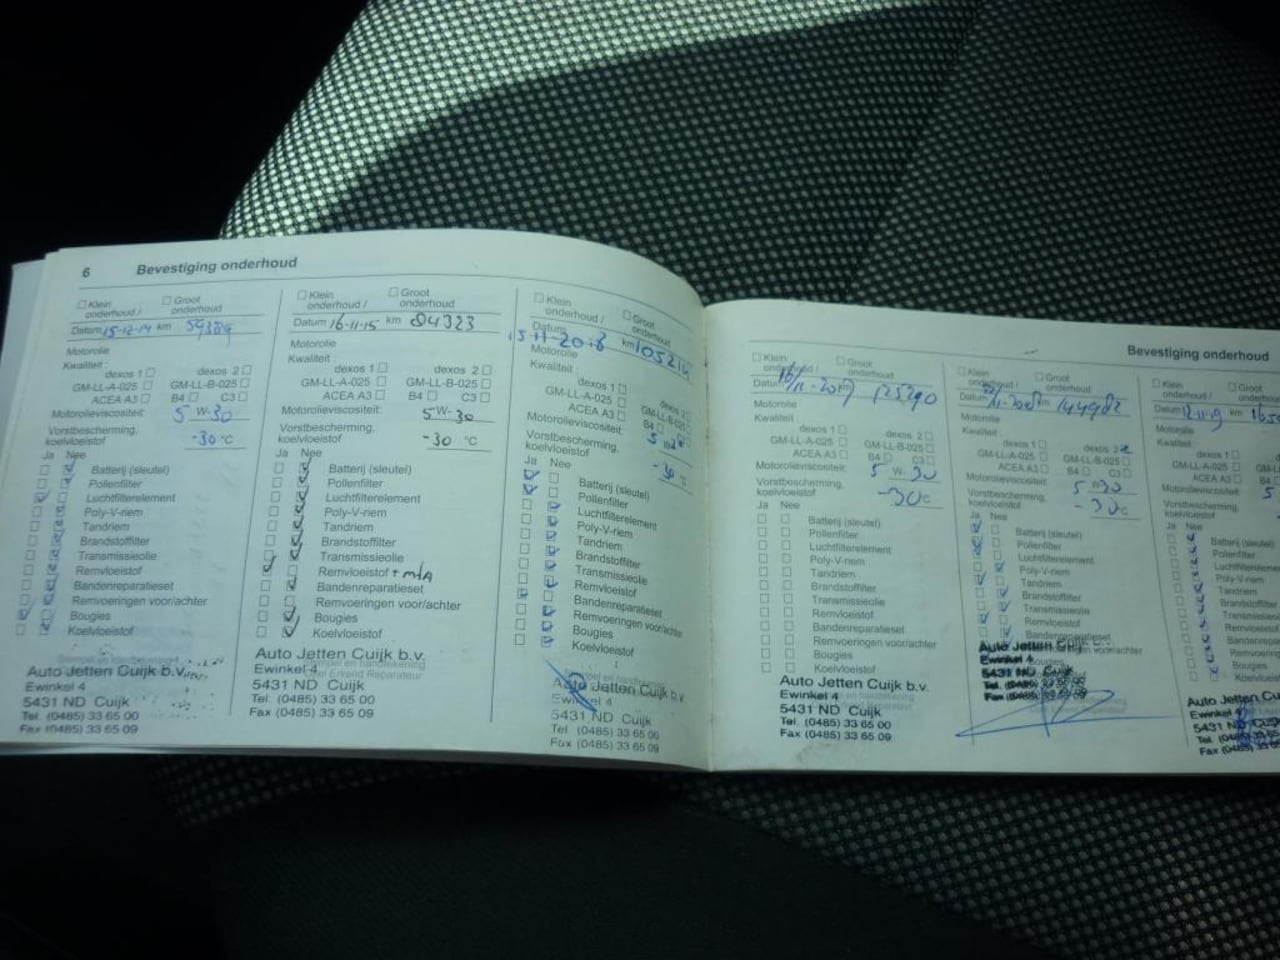 6 Bevestiging onderhoud
Klein onderhoud /
Groot onderhoud
Datum 15-12-14 km 59389
Motorolie
Kwaliteit :
dexos 1 dexos 2
GM-LL-A-025 GM-LL-B-025
ACEA A3 B4 C3
Motorolieviscositeit:
5 W-30
Vorstbescherming,
koelvloeistof -30 °C
Ja Nee
Batterij (sleutel)
Pollenfilter
Luchtfilterelement
Poly-V-riem
Tandriem
Brandstoffilter
Transmissieolie
Remvloeistof
Bandenreparatieset
Remvoeringen voor/achter
Bougies
Koelvloeistof
Auto Jetten Cuijk b.v.
Ewinkel 4
5431 ND Cuijk
Tel. (0485) 33 65 00
Fax (0485) 33 65 09
Klein onderhoud /
Groot onderhoud
Datum 16-11-15 km 84323
Motorolie
Kwaliteit :
dexos 1 dexos 2
GM-LL-A-025 GM-LL-B-025
ACEA A3 B4 C3
Motorolieviscositeit:
5W-30
Vorstbescherming,
koelvloeistof -30 °C
Ja Nee
Batterij (sleutel)
Pollenfilter
Luchtfilterelement
Poly-V-riem
Tandriem
Brandstoffilter
Transmissieolie
Remvloeistof +
Bandenreparatieset
Remvoeringen voor/achter
Bougies
Koelvloeistof
Stempel en handtekening
Opel Erkend Reparateur
Auto Jetten Cuijk b.v.
Ewinkel 4
5431 ND Cuijk
Tel. (0485) 33 65 00
Fax (0485) 33 65 09
Klein onderhoud /
Groot onderhoud
Datum km
Motorolie
Kwaliteit :
dexos 1 dexos 2
GM-LL-A-025
ACEA A3 B4
Motorolieviscositeit:
5 W30
Vorstbescherming,
koelvloeistof -30 °C
Ja Nee
Batterij (sleutel)
Pollenfilter
Luchtfilterelement
Poly-V-riem
Tandriem
Brandstoffilter
Transmissieolie
Remvloeistof
Bandenreparatieset
Remvoeringen voor/achter
Bougies
Koelvloeistof
Auto Jetten Cuijk b.v.
Ewinkel 4
5431 ND Cuijk
Tel. (0485) 33 65 00
Fax (0485) 33 65 09
Bevestiging onderhoud
Klein onderhoud /
Groot onderhoud
Datum 125290
Motorolie
Kwaliteit :
dexos 1 dexos 2
GM-LL-A-025 GM-LL-B-025
ACEA A3 B4 C3
Motorolieviscositeit: 5 W-30
Vorstbescherming,
koelvloeistof -30°C
Ja Nee
Batterij (sleutel)
Pollenfilter
Luchtfilterelement
Poly-V-riem
Tandriem
Brandstoffilter
Transmissieolie
Remvloeistof
Bandenreparatieset
Remvoeringen voor/achter
Bougies
Koelvloeistof
Auto Jetten Cuijk b.v.
Ewinkel 4
5431 ND Cuijk
Tel. (0485) 33 65 00
Fax (0485) 33 65 09
Klein onderhoud /
Groot onderhoud
Datum 144982
Motorolie
Kwaliteit :
dexos 1 dexos 2
GM-LL-A-025 GM-LL-B-025
ACEA A3 B4 C3
Motorolieviscositeit: 5 W30
Vorstbescherming,
koelvloeistof -30°C
Ja Nee
Batterij (sleutel)
Pollenfilter
Luchtfilterelement
Poly-V-riem
Tandriem
Brandstoffilter
Transmissieolie
Remvloeistof
Bandenreparatieset
Auto Jetten Cuijk b.v.
Ewinkel 4
5431 ND Cuijk
Klein onderhoud /
Groot
Datum 12-11-19 km
Motorolie
Kwaliteit :
dexos 1
GM-LL-A-025
ACEA A3 B4
Motorolieviscositeit: 5
Vorstbescherming,
koelvloeistof
Ja Nee
Batterij (sleutel)
Pollenfilter
Luchtfilterelement
Poly-V-riem
Tandriem
Brandstoffilter
Transmissieolie
Remvloeistof
Bandenrepara
Remvoeringen
Bougies
Koelvloeistof
Auto Jetten Cu
Ewinkel 4
5431 ND
Tel. (0485) 33 65
Fax (0485) 33 65